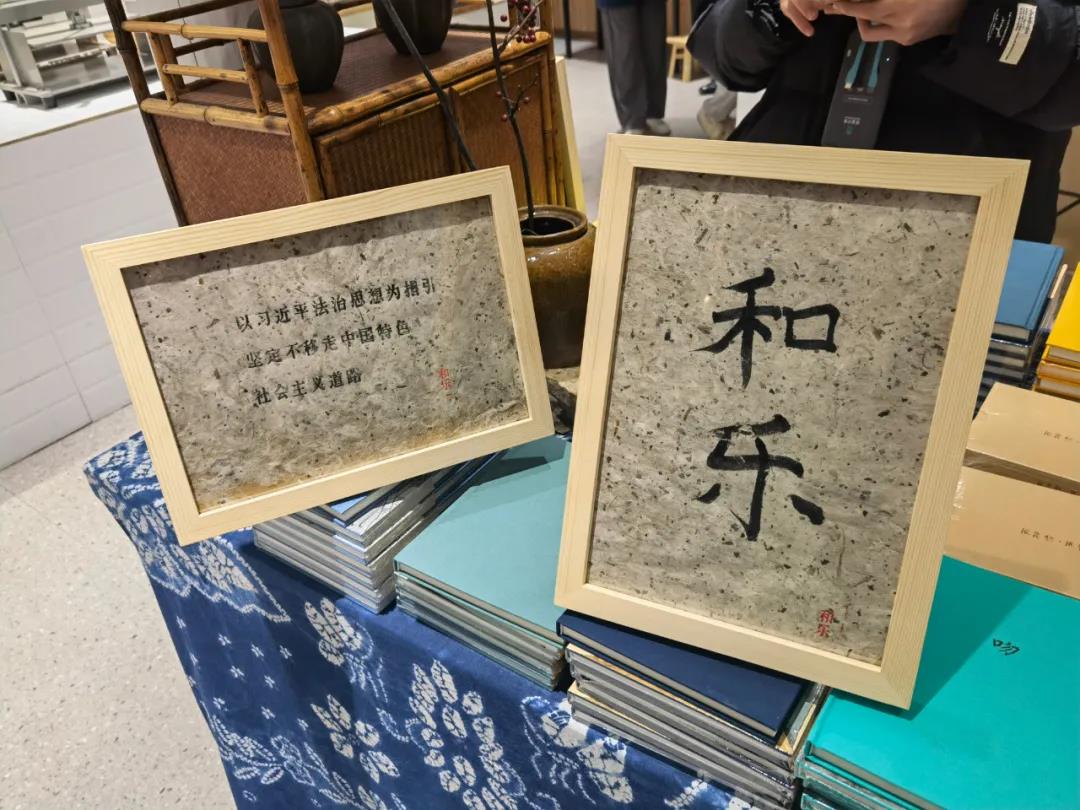 以习近平法治思想为指引
坚定不移走中国特色
社会主义道路
和乐
和
乐
和乐
吻